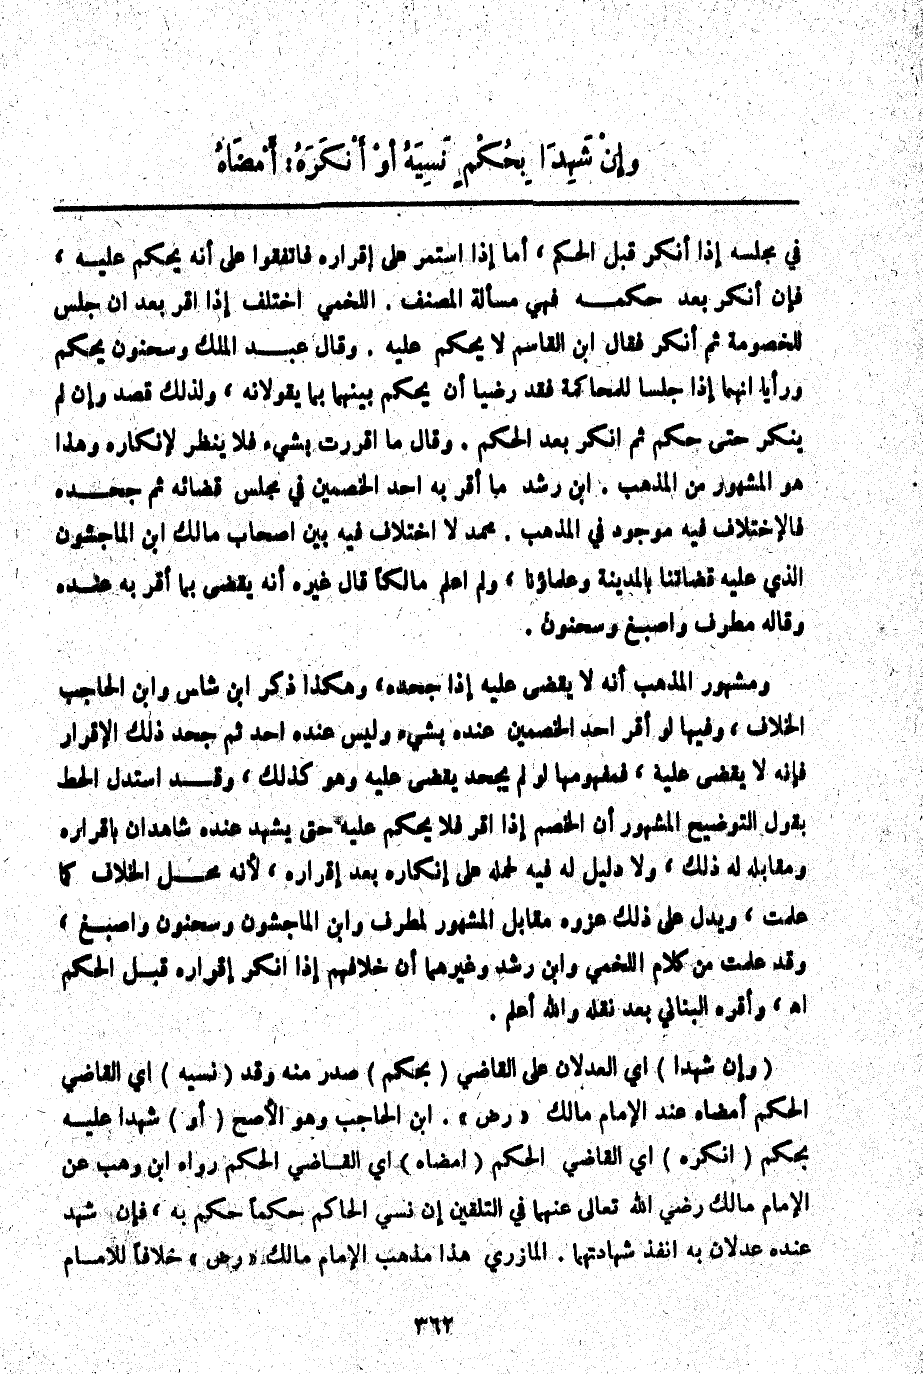 وإنْ شَهِدَا بِحُكْمٍ نَسِيَهُ أَوْ أَنْكَرَهُ: أَمْضَاهُ
في مجلسه إذا أنكر قبل الحكم ، أما إذا استمر على إقراره فاتفقوا على أنه يحكم عليه ،
فإن أنكر بعد حكمه فهي مسألة المصنف . اللخمي اختلف إذا اقر بعد ان جلس
للخصومة ثم أنكر فقال ابن القاسم لا يحكم عليه . وقال عبد الملك وسحنون يحكم
ورأيا انهما إذا جلسا للمحاكمة فقد رضيا أن يحكم بينهما بما يقولانه ، ولذلك قصد وإن لم
ينكر حتى حكم ثم انكر بعد الحكم . وقال ما اقررت بشيء فلا ينظر لإنكاره وهذا
هو المشهور من المذهب . ابن رشد ما أقر به احد الخصمين في مجلس قضائه ثم جحده
فالإختلاف فيه موجود في المذهب . محمد لا اختلاف فيه بين اصحاب مالك ابن الماجشون
الذي عليه قضاتنا بالمدينة وعلماؤنا ، ولم اعلم مالكاً قال غيره أنه يقضى بما أقر به عنده
وقاله مطرف واصبغ وسحنون .
ومشهور المذهب أنه لا يقضى عليه إذا جحده، وهكذا ذكر ابن شاس وابن الحاجب
الخلاف ، وفيها لو أقر احد الخصمين عنده بشيء وليس عنده احد ثم جحد ذلك الإقرار
فإنه لا يقضى علية ، فمفهومها لو لم يجحد يقضى عليه وهو كذلك ، وقد استدل الحط
بقول التوضيح المشهور أن الخصم إذا اقر فلا يحكم عليه حتى يشهد عنده شاهدان باقراره
ومقابله له ذلك ، ولا دليل له فيه لحمله على إنكاره بعد إقراره ، لأنه محل الخلاف كما
علمت ، ويدل على ذلك عزوه مقابل المشهور لمطرف وابن الماجشون وسحنون واصبغ ،
وقد علمت من كلام اللخمي وابن رشد وغيرهما أن خلافهم إذا انكر إقراره قبل الحكم
اه ، وأقره البناني بعد نقله والله أعلم .
( وإن شهدا ) اي العدلان على القاضي ( بحكم ) صدر منه وقد ( نسيه ) اي القاضي
الحكم أمضاه عند الإمام مالك « رض » . ابن الحاجب وهو الأصح ( أو ) شهدا عليه
بحكم ( انكره ) اي القاضي الحكم ( امضاه ) اي القاضي الحكم رواه ابن وهب عن
الإمام مالك رضي الله تعالى عنهما في التلقين إن نسي الحاكم حكماً حكم به ، فإن شهد
عنده عدلان به انفذ شهادتهما . المازري هذا مذهب الإمام مالك « رض » خلافاً للامام
٣٦٢